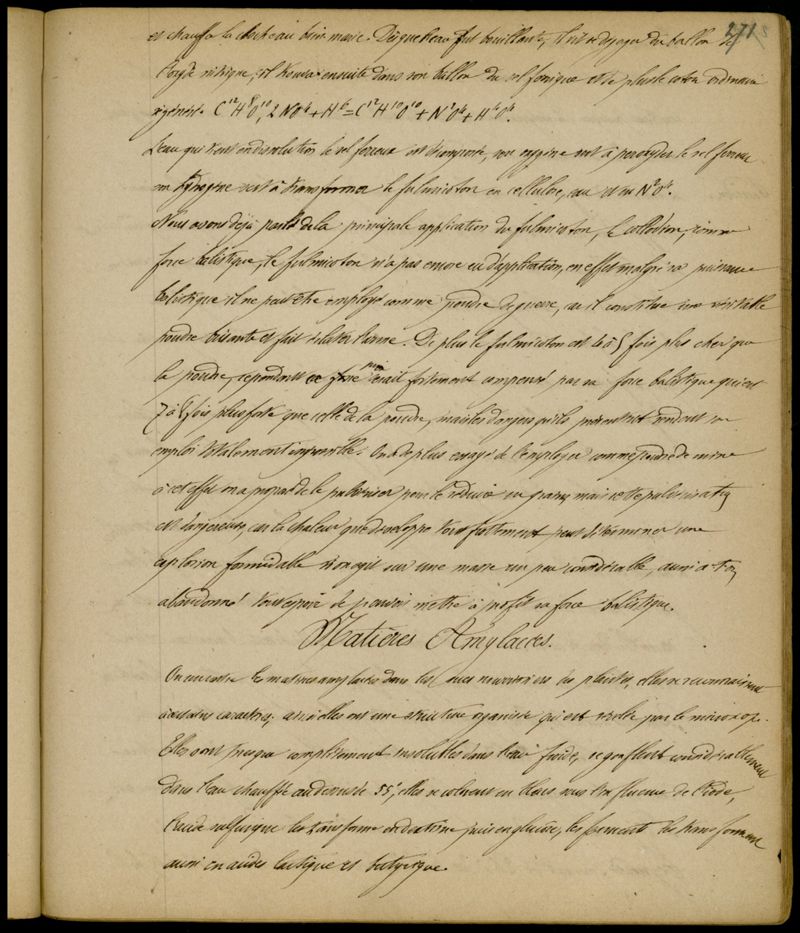 271
et chauffe le tout au bain marie. Dès que l'eau fut bouillante, il vit se dégager du ballon de
l'oxyde nitrique, il trouva ensuite dans son ballon du sel ferrique et de plus le coton ordinaire
régénéré. C¹²H⁸O¹⁰, 2NO⁴ + H⁶ = C¹²H¹⁰O¹⁰ + N²O⁴ + H⁴O⁴.
L'eau qui tient en dissolution le sel ferreux est décomposée, son oxygène sert à peroxyder le sel ferreux
son hydrogène sert à transformer le fulmicoton en cellulose, eau et en N²O⁴.
Nous avons déjà parlé de la principale application du fulmicoton, le collodion; comme
force balistique, le fulmicoton n'a pas encore eu d'application, en effet malgré sa puissance
balistique il ne peut être employé comme poudre de guerre, car il constitue une véritable
poudre brisante et fait éclater l'arme. De plus le fulmicoton est 4 à 5 fois plus cher que
la poudre, cependant ce prix serait fortement compensé par sa force balistique qui est
7 à 8 fois plus forte que celle de la poudre, mais les dangers qu'ils présentent rendent son
emploi totalement impossible. On a de plus essayé de l'employer comme poudre de mine
à cet effet on a proposé de le pulvériser pour le réduire en grains mais cette pulvérisation
est dangereuse, car la chaleur que développe tout frottement peut déterminer une
explosion formidable si on agit sur une masse un peu considérable, aussi a-t-on
abandonné tout espoir de pouvoir mettre à profit sa force balistique.
Matières Amylacées.
On rencontre les matières amylacées dans les sucs nourriciers des plantes, elles se reconnaissent
à certains caractères; ainsi elles ont une structure organisée qui est révélée par le microscope.
Elles sont presque complètement insolubles dans l'eau froide, se gonflent considérablement
dans l'eau chauffée au dessus de 55°, elles se colorent en bleu sous l'influence de l'iode,
l'acide sulfurique les transforme en dextrine puis en glucose, les ferments les transforment
aussi en acides lactique et butyrique.